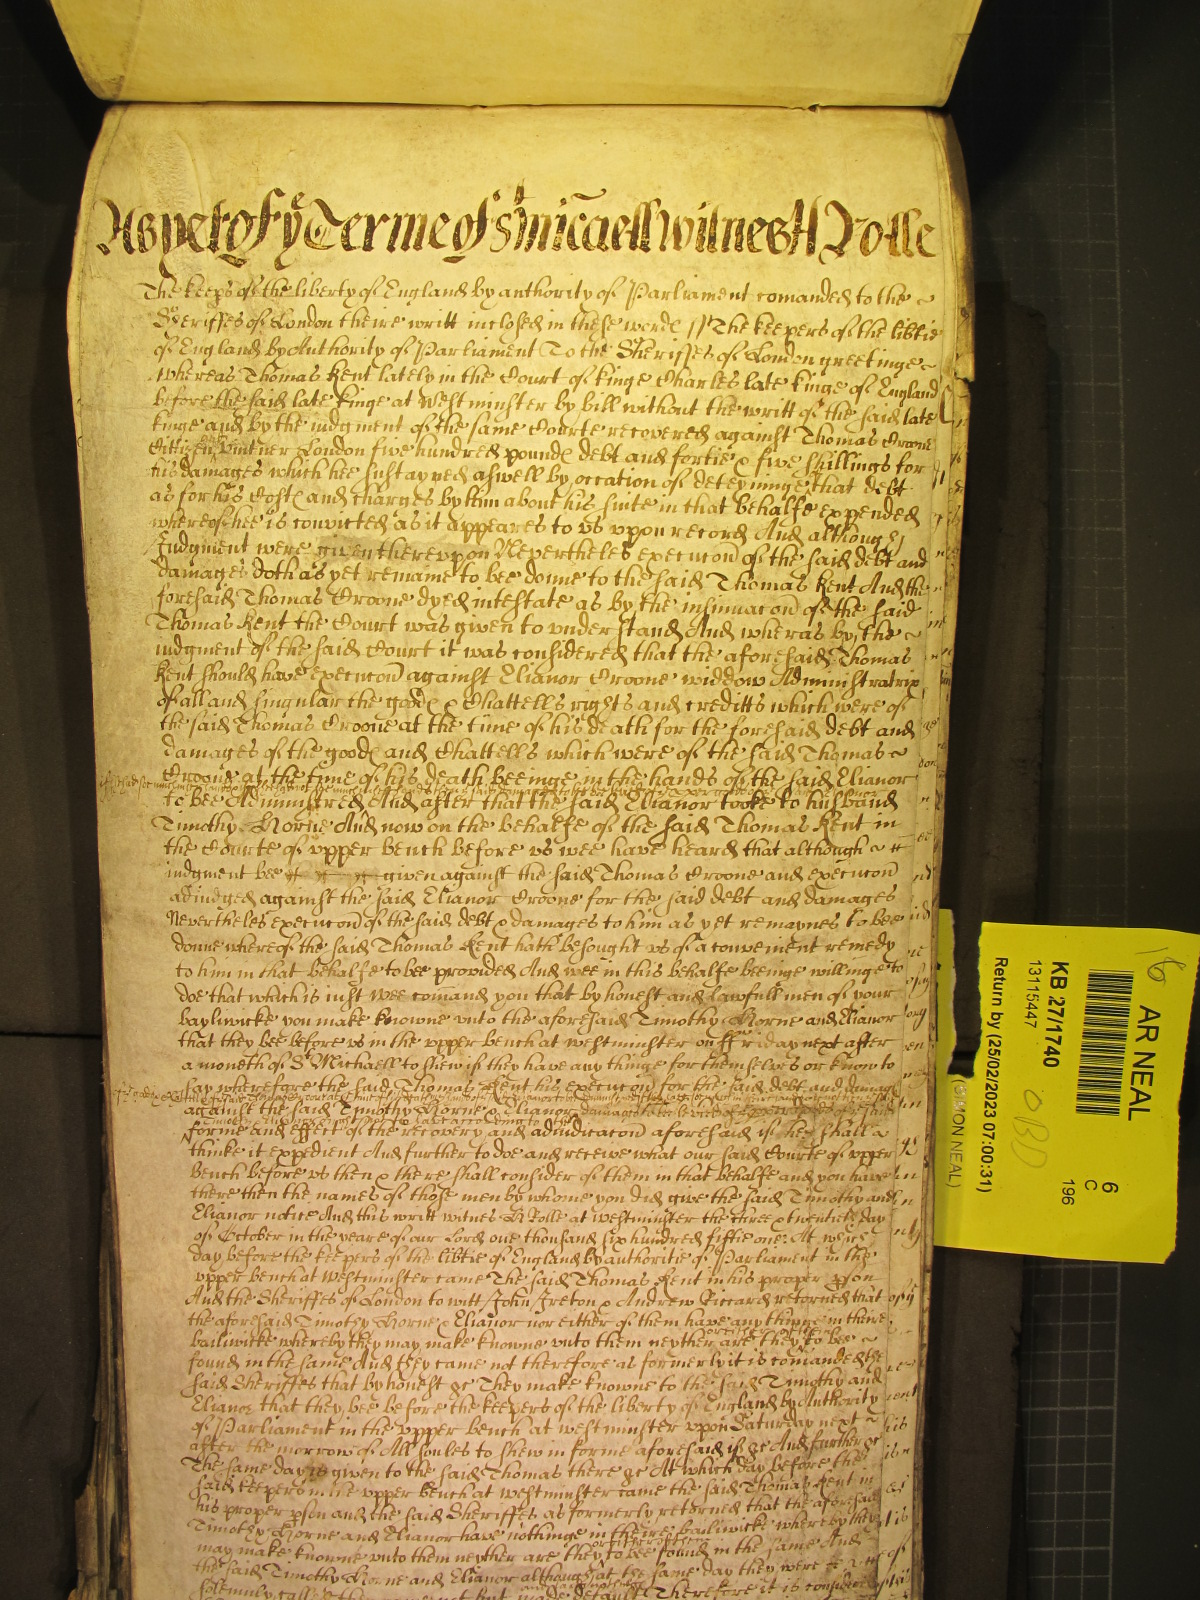 As yet of ye Terme of St Micaell witnes H Rolle
The keeps of the liberty of England by authority of Parliament comanded to the
Sheriffes of London theire writt inclosed in these words // The keepers of the libtie
of England by Authority of Parliament To the Sheriffes of London greetinge
whereas Thomas Kent lately in the Court of kinge Charles late kinge of England
before the said late kinge at Westminster by bill without the writt of the said late
kinge and by the iudgment of the same Courte recovered against Thomas Croone
Cittizen and vintner London five hundred pounds debt and fortie & five shillings for
his damages which hee sustayned aswell by occation of deteyninge that debt
as for his Costs and charges by him about his suite in that behalfe expended
whereof hee is convicted as it appeares to vs vpon record And although
Judgment were given therevpon Nevertheles execucon of the said debt and
damages doth as yet remaine to bee donne to the said Thomas Kent And the
foresaid Thomas Croone dyed intestate as by the insinuacon of the said
Thomas Kent the Court was given to vnderstand And wheras by the
iudgment of the said Court it was considered that the aforesaid Thomas
Kent should have execucon against Elianor Croone widdow Administratrix
of all and singular the goods & Chattells rights and creditts which were of
the said Thomas Croone at the time of his death for the foresaid debt and
damages of the goods and Chattells which were of the said Thomas
Croone at the time of his death beeinge in the hands of the said Elianor
to bee Administred And after that the said Elianor tooke to husband
Timothy Horne And now on the behalfe of the said Thomas Kent in
the Courte of vpper bench before vs wee have heard that although
iudgment bee given against the said Thomas Croone and execucon
adiudged against the said Elianor Croone for the said debt and damages
Nevertheles execucon of the said debt & damages to him as yet remaynes to bee
donne whereof the said Thomas Kent hath besought vs of a convenient remedy
to him in that behalfe to bee provided And wee in this behalfe beeinge willinge to
doe that which is iust wee comand you that by honest and lawfull men of your
bayliwicke you make knowne vnto the aforesaid Timothy Horne and Elianor
that they bee before vs in the vpper bench at westminster on ffriday next after
a moneth of St Michaell to shew if they have any thinge for themselves or know to
say wherefore the said Thomas Kent his execucon for the said debt and damages
against the said Timothy Horne & Elianor
forme and effect of the recovery and adiudicacon aforesaid if hee shall
thinke it expedient And further to doe and receive what our said Courte of vpper
Bench before vs then & there shall consider of them in that behalfe and you have
there then the names of those men by whome you did give the said Timothy and
Elianor notice And this writt witnes H Rolle at westminster the three & twentieth day
of October in the yeare of our Lord one thousand six hundred fiftie one. At which
day before the keepers of the libtie of England by authoritie of Parliament in the
vpper bench at westminster came The said Thomas Kent in his proper pson
And the Sheriffes of London to witt John Ireton & Andrew Riccard retorned that
the aforesaid Timothy Horne & Elianor nor either of them have any thinge in theire
bailiwicke whereby they may make knowne vnto them neyther are they to bee
found in the same And they came not therefore as formerly it is comanded the
said Sheriffes that by honest &c They make knowne to the said Timothy and
Elianor that they bee before the keepers of the liberty of England by Authority
of Parliament in the vpper bench at westminster vpon Saturday next
after the morrow of All soules to shew in forme aforesaid if &c And further &c
The same day is given to the said Thomas there &c At which day before the
said keepers in the vpper bench at westminster came the said Thomas Kent in
his proper pson and the said Sheriffes as formerly retorned that the aforesaid
Timothy Horne and Elianor have nothinge in theire bailiwicke whereby they
may make knowne vnto them neyther are they to bee found in the same And
the said Timothy Horne and Elianor although at the same day they were
solemnly called came not but made default Therefore it is considered
16
AR NEAL
KB 27/1740
13115447
Return by (25/02/2023 07:00:31)
(SIMON NEAL)
OBD
6
C
196